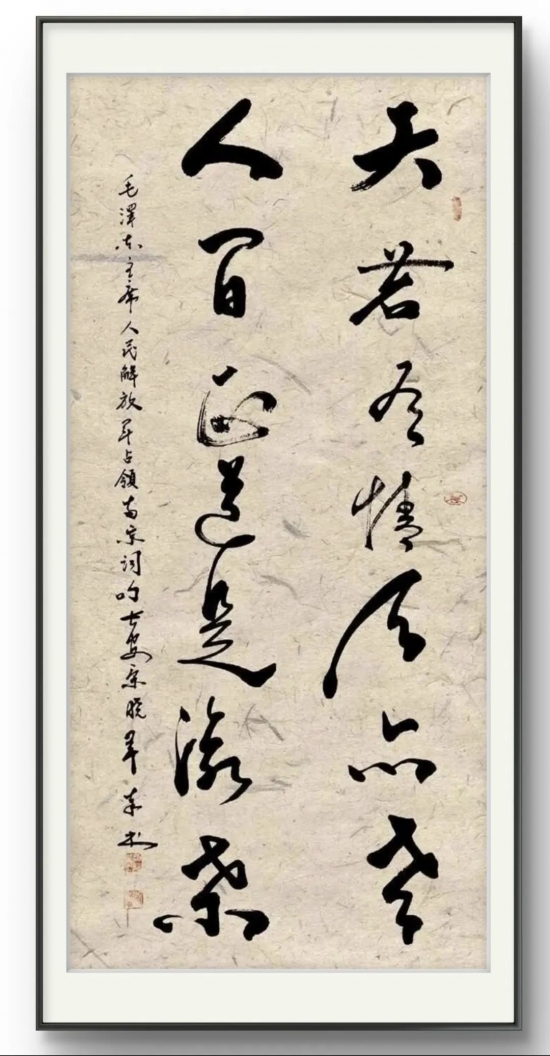 天若有情天亦老
人间正道是沧桑
毛泽东主席人民解放军占领南京词句长安宗晓军书